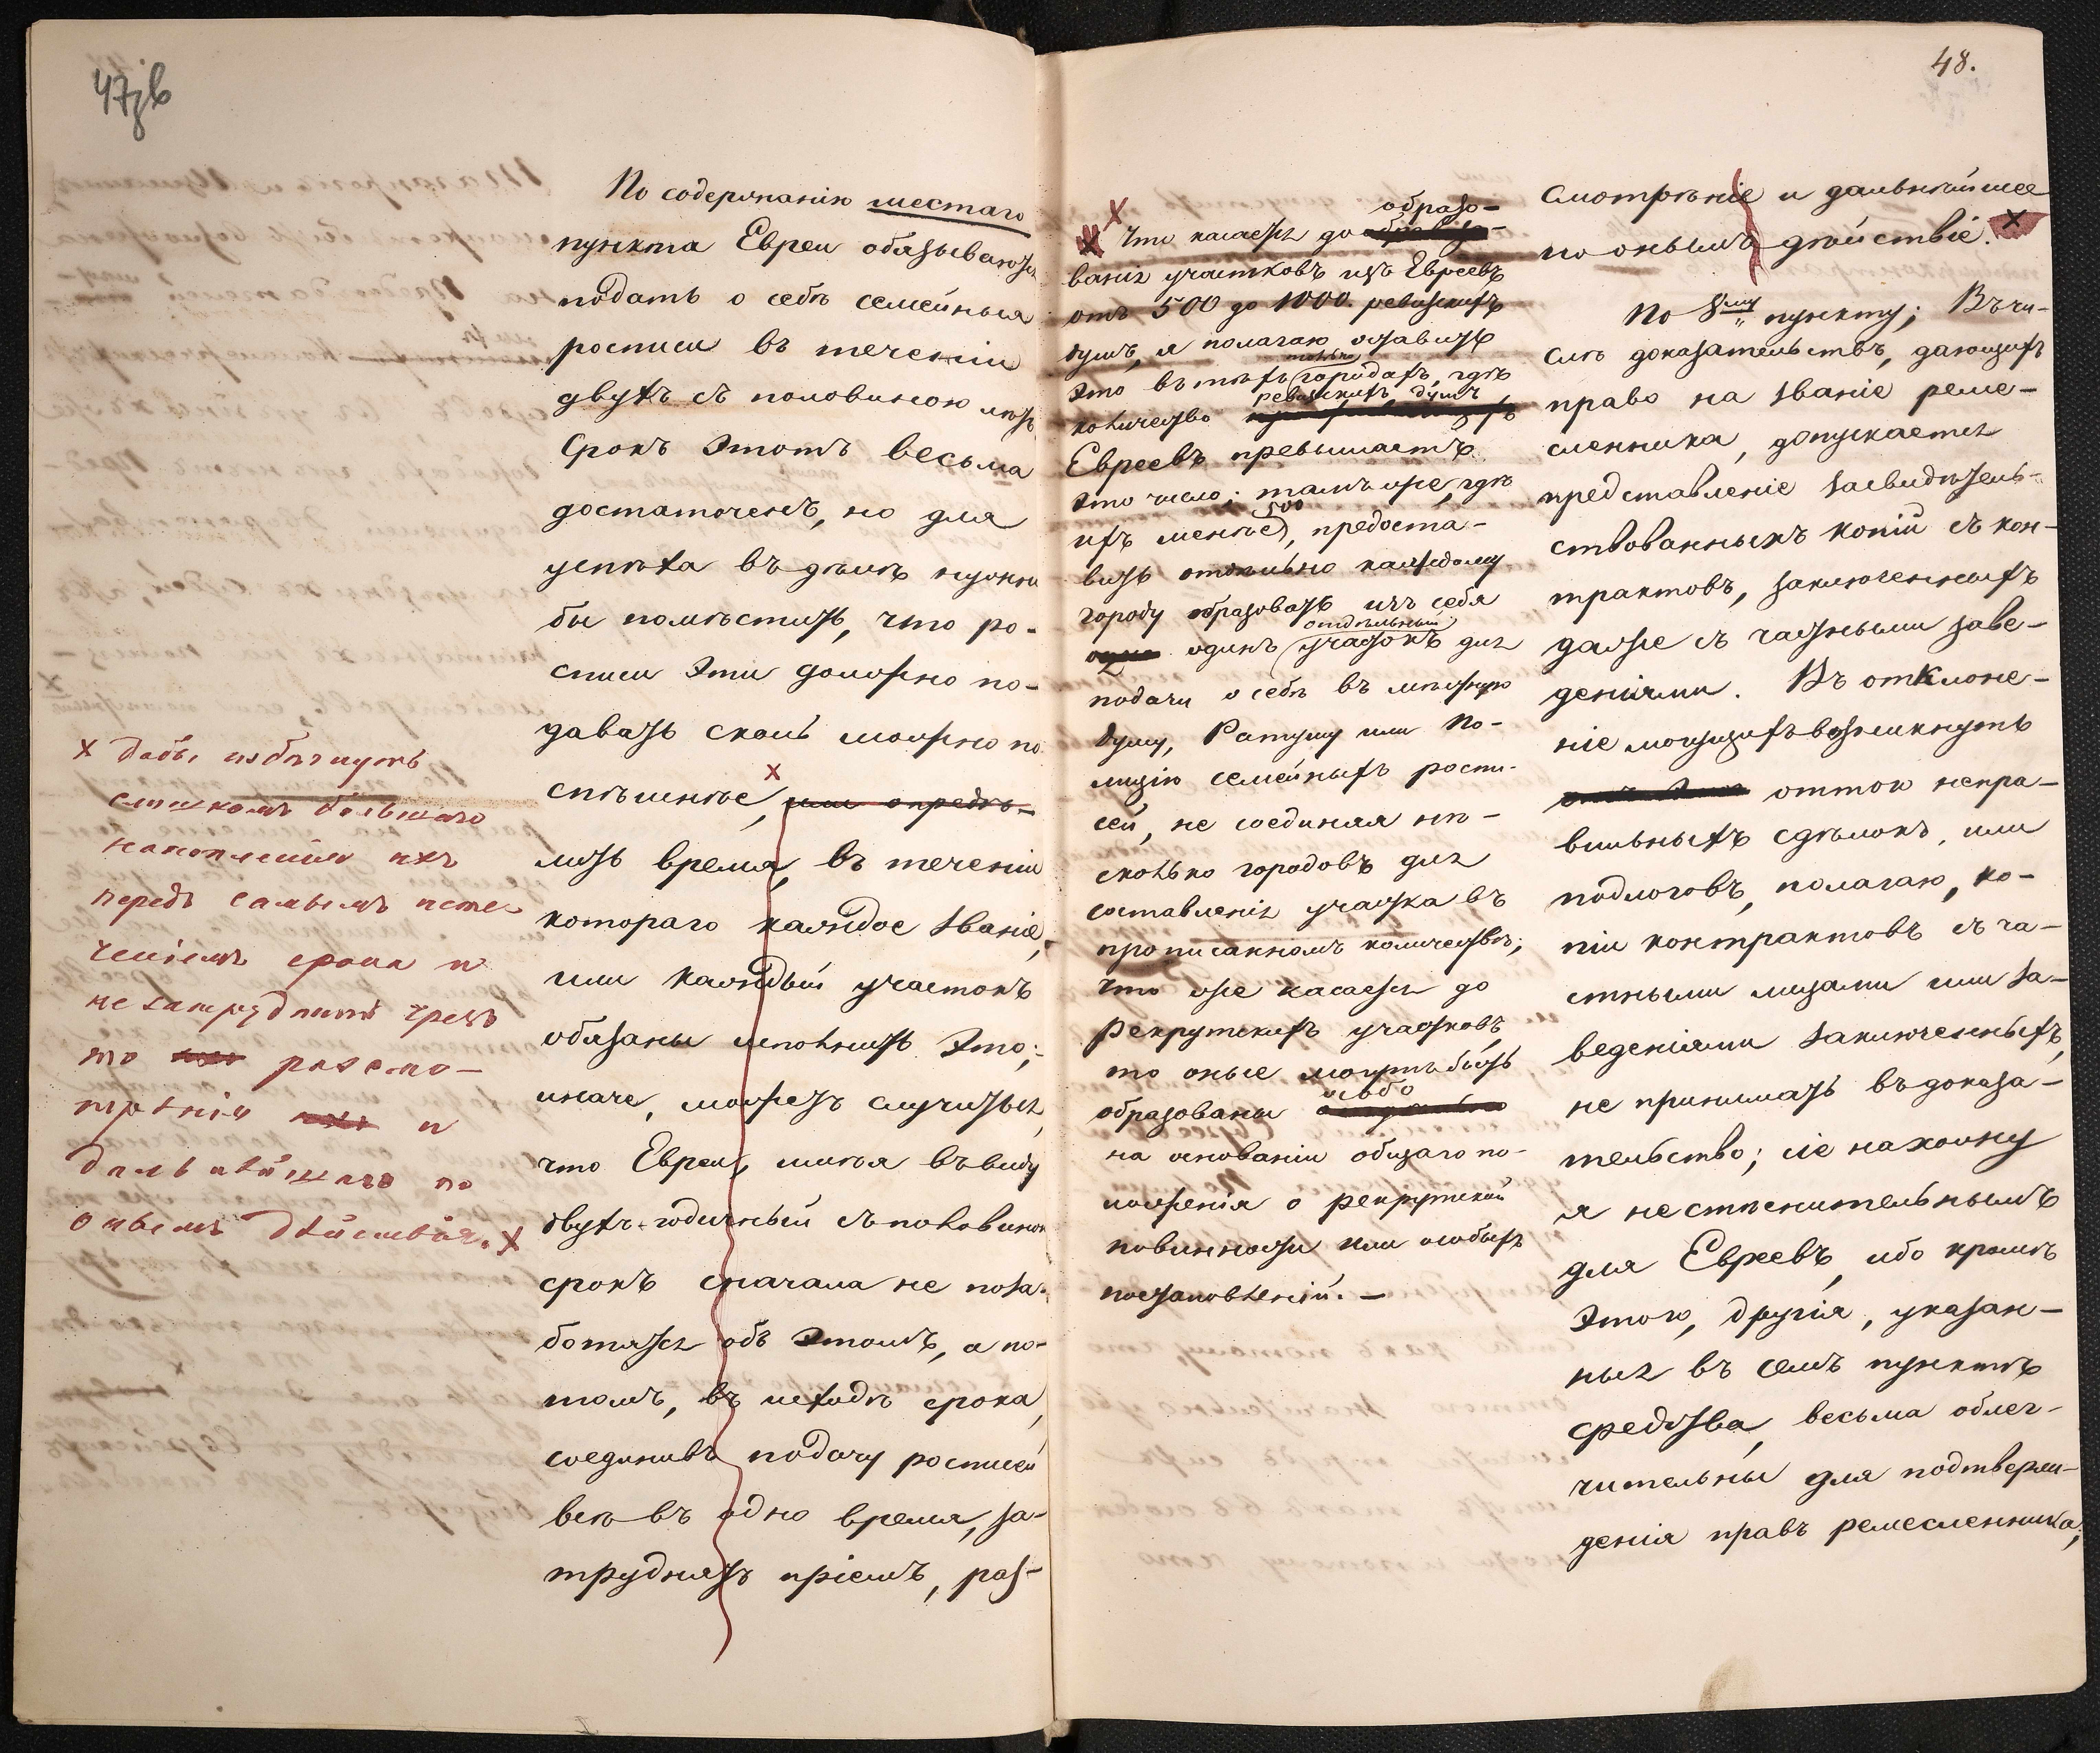 47 зв
По содержанію шестаго
пункта Евреи обязываются
подать о себѣ семейныя
росписи въ теченіи
двухъ съ половиною лѣтъ
Срокъ этотъ весьма
достаточенъ, но для
успѣха въ дѣлѣ нужно
бы помѣстить, что ро-
списи эти должно по-
давать сколь можно по
спѣшнѣе, х или опредѣ-
лить время, въ теченіи
котораго каждое званіе,
или каждый участокъ
обязаны исполнить это;
иначе, можетъ случиться,
что Евреи, имѣя въ виду
двухъ-годичный съ половиною
срокъ сначала не поза-
ботятся объ этомъ, а по-
томъ, въ исходѣ срока,
соединивъ подачу росписей
всѣ въ одно время, за-
труднятъ пріемъ, раз-
х Дабы избѣгнуть
слишкомъ большаго
накопленія ихъ
передъ самымъ исте-
ченіемъ срока и
не затруднить чрезъ
то разсмо-
трѣнія и
дальнѣйшаго по
онымъ дѣйствія. х
48.
х
Что касается до образо-
ванія участковъ изъ Евреевъ
отъ 500 до 1000. ревизскихъ
душъ, я полагаю оставить
это въ тѣхъ только городахъ, гдѣ
количество ревизскихъ душъ
Евреевъ превышаетъ
это число; тамъ же, гдѣ
ихъ менѣе 500, предоста-
вить отдѣльно каждому
городу образовать изъ себя
одинъ отдѣльный участокъ для
подачи о себѣ въ мѣстную
Думу, Ратушу или По-
лицію семейныхъ роспи-
сей, не соединяя нѣ-
сколько городовъ для
составленія участка въ
прописанномъ количествѣ;
что же касается до
Рекрутскихъ участковъ,
то оные могутъ быть
образованы особо
на основаніи общаго по-
ложенія о рекрутской
повинности или особыхъ
постановленій. —
смотрѣніе и дальнѣйшее
по онымъ дѣйствіе. х
По 8му пункту; Въ чи-
слѣ доказательствъ, дающихъ
право на званіе реме-
сленника, допускается
представленіе засвидѣтель-
ствованныхъ копій съ кон-
трактовъ, заключенныхъ
даже съ частными заве-
деніями. Въ отклоне-
ніе могущихъ возникнуть
оттого непра-
вильныхъ сдѣлокъ, или
подлоговъ, полагаю, ко-
піи контрактовъ съ ча-
стными лицами или за-
веденіями заключенныхъ,
не принимать въ доказа-
тельство; сіе нахожу
я не стѣснительнымъ
для Евреевъ, ибо кромѣ
этого, другія, указан-
ныя въ семъ пунктѣ
средства, весьма облег-
чительны для подтверж-
денія правъ ремесленника;